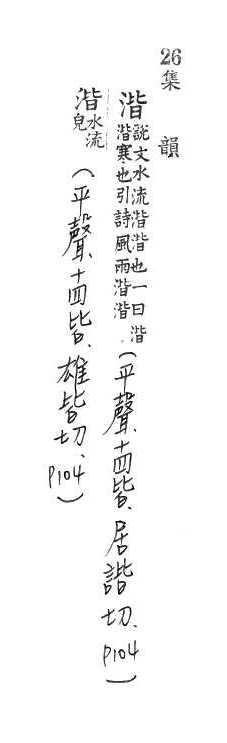 26集韻
湝說文水流湝湝也一曰湝湝寒也引詩風雨湝湝(平聲、十四皆、居諧切、P104)
湝水流皃(平聲、十四皆、雄皆切、P104)